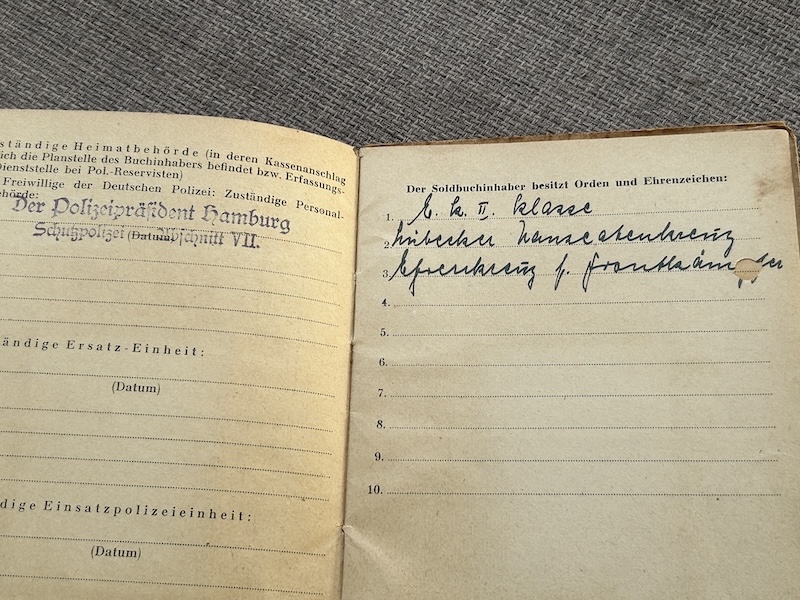 ständige Heimatbehörde (in deren Kassenanschlag
ich die Planstelle des Buchinhabers befindet bzw. Erfassungs-
Dienststelle bei Pol.-Reservisten)
Freiwillige der Deutschen Polizei: Zuständige Personal-
ehörde:
Der Polizeipräsident Hamburg
Schutzpolizei Abschnitt VII.
(Datum)
ändige Ersatz-Einheit:
(Datum)
dige Einsatzpolizeieinheit:
(Datum)
Der Soldbuchinhaber besitzt Orden und Ehrenzeichen:
1. E. K. II. Klasse
2. Lübecker Hanseatenkreuz
3. Ehrenkreuz f. Frontkämpfer
4.
5.
6.
7.
8.
9.
10.